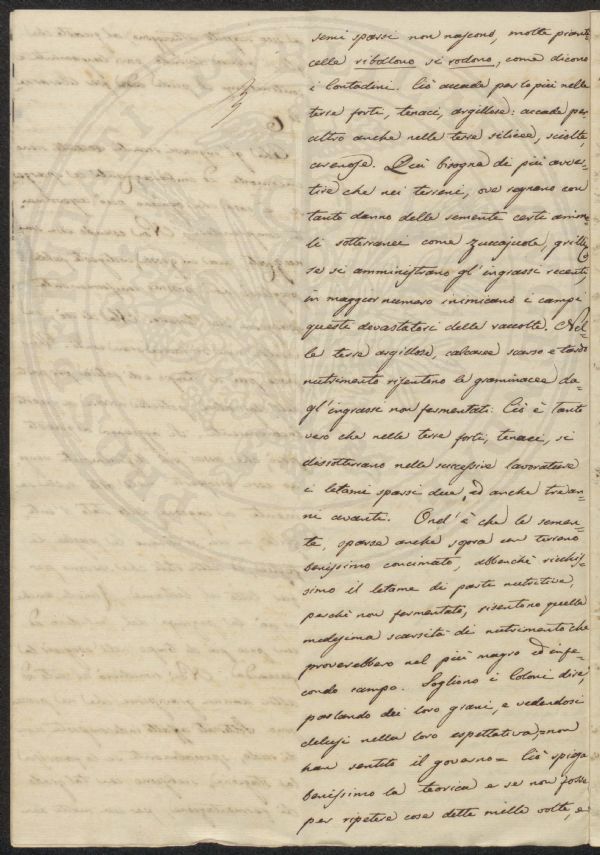 semi sparsi non nascono, molte pianti=
celle ribollono si rodono, come dicono
i Contadini. Ciò accade per lo più nelle
terre forti, tenaci, argillose: accade per
altro anche nelle terre silicee, sciolte,
arenose. Quì bisogna di più avver=
tire che nei terreni, ove regnano con
tanto danno delle semente certi anima=
li sotterranei come zuccajuole, grilli
se si amministrano gl'ingrassi recenti,
in maggior numero inimicano i campi
questi devastatori delle raccolte. Nel=
le terre argillose, calcaree scarso e tardo
nutrimento risentono le graminacee da=
gl'ingrassi non fermentati: Ciò è tanto
vero che nelle terre forti, tenaci, si
dissotterrano nelle successive lavorature
i letami sparsi due, ed anche tre an=
ni avanti. Ond'è che le semen=
te, sparse anche sopra un terreno
benissimo concimato, abbenchè ricchis=
simo il letame di parti nutritive,
perchè non fermentato, risentono quella
medesima scarsità di nutrimento che
proverebbero nel più magro ed infe=
condo campo. Sogliono i Coloni dire,
parlando dei loro grani, e vedendosi
delusi nella loro espettativa,=non
han sentito il governo= Ciò spiega
benissimo la teorica e se non fosse
per ripetere cose dette mille volte, e